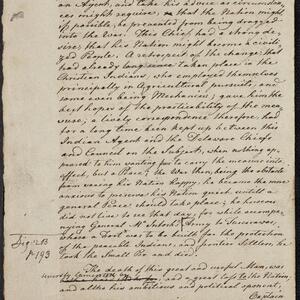 an Agent, and take his advice as circumstan-
ces might require, so that the Nation might
if possible, be prevented from being dragged
into the War. This Chief had a strong de-
sire, that his Nation might become a civili-
zed People. A retrospect of the change, that
had already long since taken place in the
Christian Indians, who employed themselves
principally in Agricultural pursuits, and
some even being Mechanics; gave him the
best hopes of the practicability of the mea-
sure; a lively correspondence therefore, had
for a long time been kept up between this
Indian Agent and the Delaware Chief
and Council on the Subject, when nothing ap-
peared to him wanting for to carry the measure into
effect, but a Peace. The War then, being the obstacle
from seeing his Nation Happy, he became the more
anxious to preserve his Nation quiet, untill a
general Peace should take place; he however
did not live to see that day, for while accompa-
nying General Mc Intosh's Army to Tuscarawas,
where a Fort was to be built for the protection
of the peacable Indians, and frontier Settlers, he
took the Small Pox and died.
p 193
The death of this great and useful Man, was
a great loss to his Nation,
and altho his ambition and political